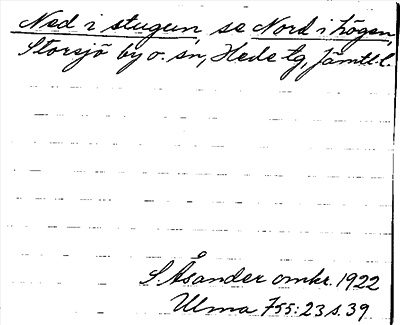 Ned i stugun, se Nord i högen,
Storsjö by o. sn, Hede tg, Jämtl. l.
S Åsander omkr. 1922
Ulma 755:23 s. 39.